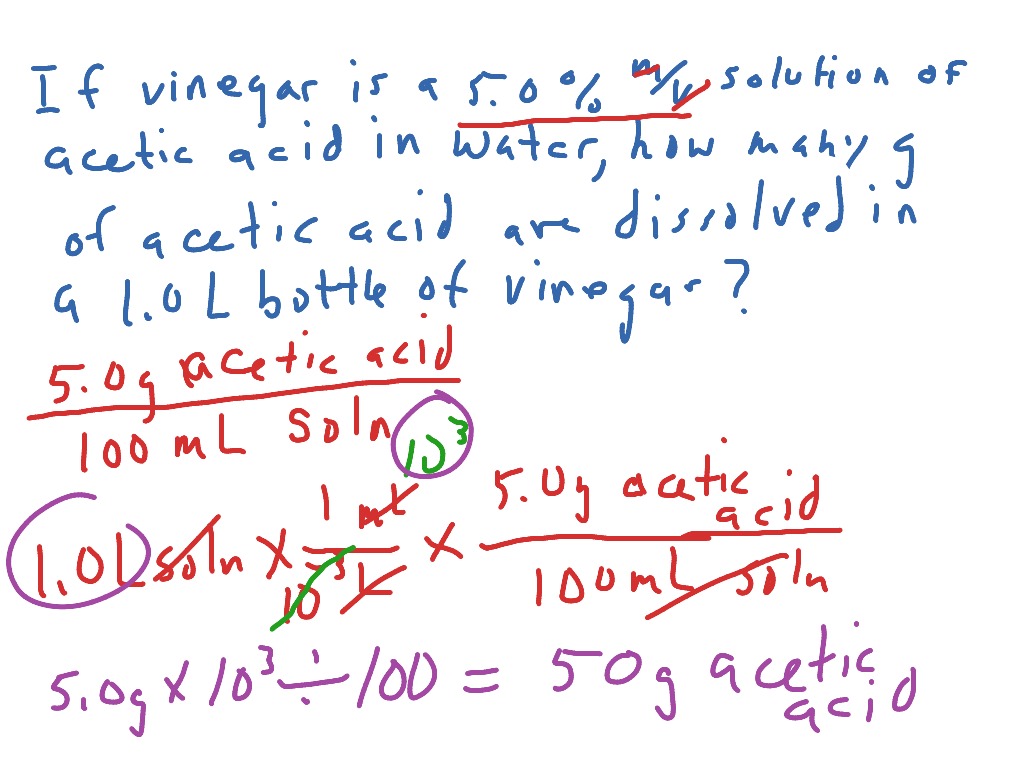 If vinegar is a 5.0% m/v solution of
acetic acid in water, how many g
of acetic acid are dissolved in
a 1.0L bottle of vinegar?
5.0g acetic acid
100 mL soln
10³
1 mL
5.0g acetic
acid
1.0L soln × ×
10⁻³ L
100 mL soln
5.0g × 10³ ÷ 100 = 50g acetic
acid